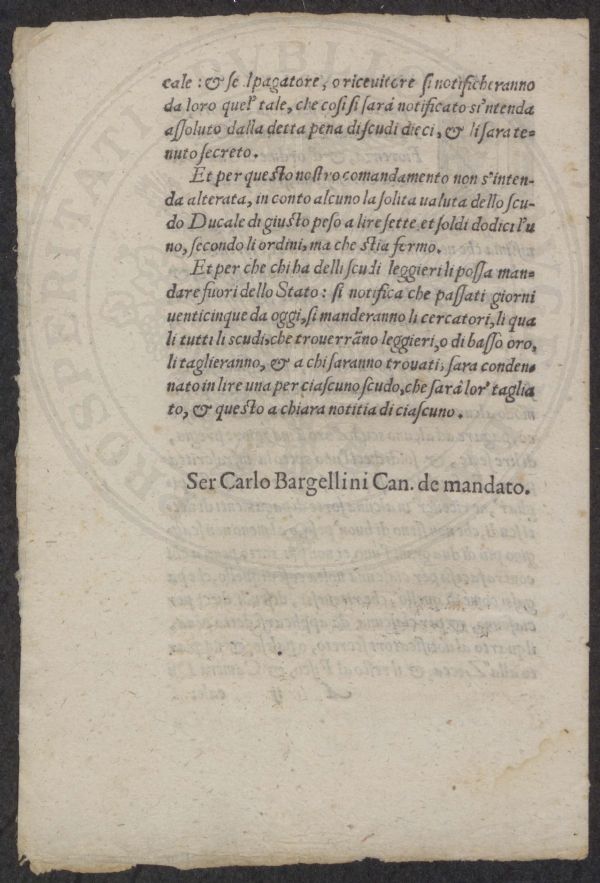 cale: & se 'l pagatore, o riceuitore si notificheranno
da loro quel' tale, che cosi si sarà notificato s'intenda
assoluto dalla detta pena di scudi dieci, & li sara te=
nuto secreto.
Et per questo nostro comandamento non s'inten-
da alterata, in conto alcuno la solita ualuta dello scu-
do Ducale di giusto peso a lire sette et soldi dodici l'u
no, secondo li ordini, ma che stia fermo.
Et per che chi ha delli scudi leggieri li possa man=
dare fuori dello Stato: si notifica che passati giorni
uenticinque da oggi, si manderanno li cercatori, li qua
li tutti li scudi, che trouerrãno leggieri, o di basso oro,
li taglieranno, & a chi saranno trouati, sara conden=
nato in lire una per ciascuno scudo, che sarà lor' taglia
to, & questo a chiara notitia di ciascuno.
Ser Carlo Bargellini Can. de mandato.